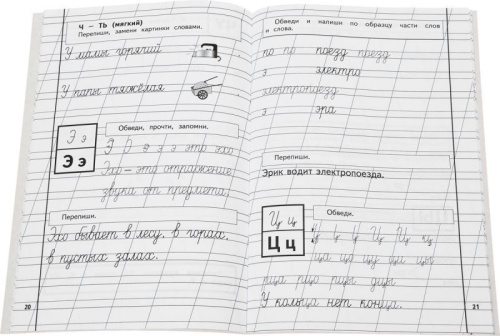 Ч – ТЬ (мягкий)
Перепиши, замени картинки словами.
У мамы горячий
У папы тяжёлая
Обведи, прочти, запомни.
Э э
Э э
Э Э э э э это эхо
Эхо – это отражение
звука от предмета.
Перепиши.
Эхо бывает в лесу, в горах,
в пустых залах.
20
Обведи и напиши по образцу части слов
и слова.
по по поезд поезд
э электро
электропоезд
э эра
Перепиши.
Эрик водит электропоезда.
Ц ц
Ц ц
Обведи.
ца цо цу ци цы
У кольца нет конца.
21